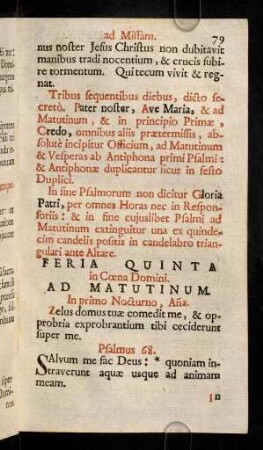 ad Missam.
79
nus noster Jesus Christus non dubitavit
manibus tradi nocentium, & crucis subi-
re tormentum. Qui tecum vivit & reg-
nat.
Tribus sequentibus diebus, dicto se-
cretò. Pater noster, Ave Maria, & ad
Matutinum, & in principio Primæ,
Credo, omnibus aliis prætermissis, ab-
solutè incipitur Officium, ad Matutinum
& Vesperas ab Antiphona primi Psalmi:
& Antiphonæ duplicantur sicut in festo
Duplici.
In fine Psalmorum non dicitur Gloria
Patri, per omnes Horas nec in Respon-
soriis: & in fine cujuslibet Psalmi ad
Matutinum extinguitur una ex quinde-
cim candelis positis in candelabro trian-
gulari ante Altare.
FERIA QUINTA
in Cœna Domini.
AD MATUTINUM.
In primo Nocturno, Aña.
Zelus domus tuæ comedit me, & op-
probria exprobrantium tibi ceciderunt
super me.
Psalmus 68.
SAlvum me fac Deus: * quoniam in-
traverunt aquæ usque ad animam
meam.
in